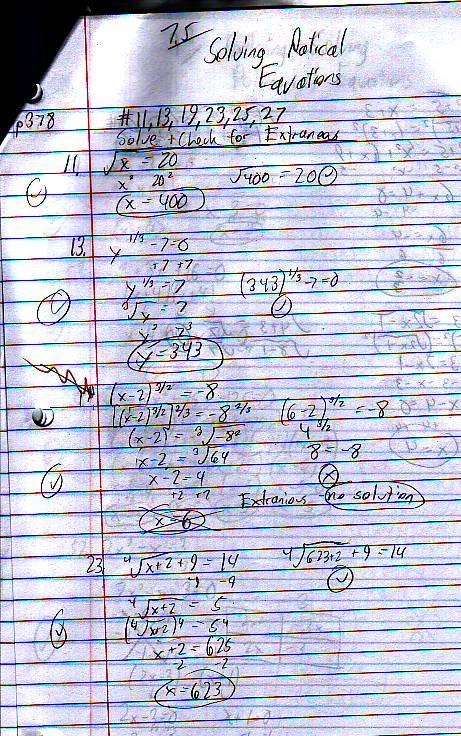 7.5 Solving Radical
Equations
p378 #11, 13, 19, 23, 25, 27
Solve + Check for Extraneas
11. √x = 20
x² 20² √400 = 20
x = 400
13. y^1/3 - 7 = 0
+7 +7
y^1/3 = 7 (343)^1/3 - 7 = 0
³√y = 7
y³ 7³
y = 343
19. (x-2)^3/2 = -8
((x-2)^3/2)^2/3 = -8^2/3 (6-2)^3/2 = -8
(x-2) = ³√-8² 4^3/2
x-2 = ³√64 8 = -8
x-2 = 4
+2 +2 Extranious no solution
x = 6
23. ⁴√x+2 + 9 = 14 ⁴√623+2 + 9 = 14
-9 -9
⁴√x+2 = 5
(⁴√x+2)⁴ = 5⁴
x+2 = 625
-2 -2
x = 623